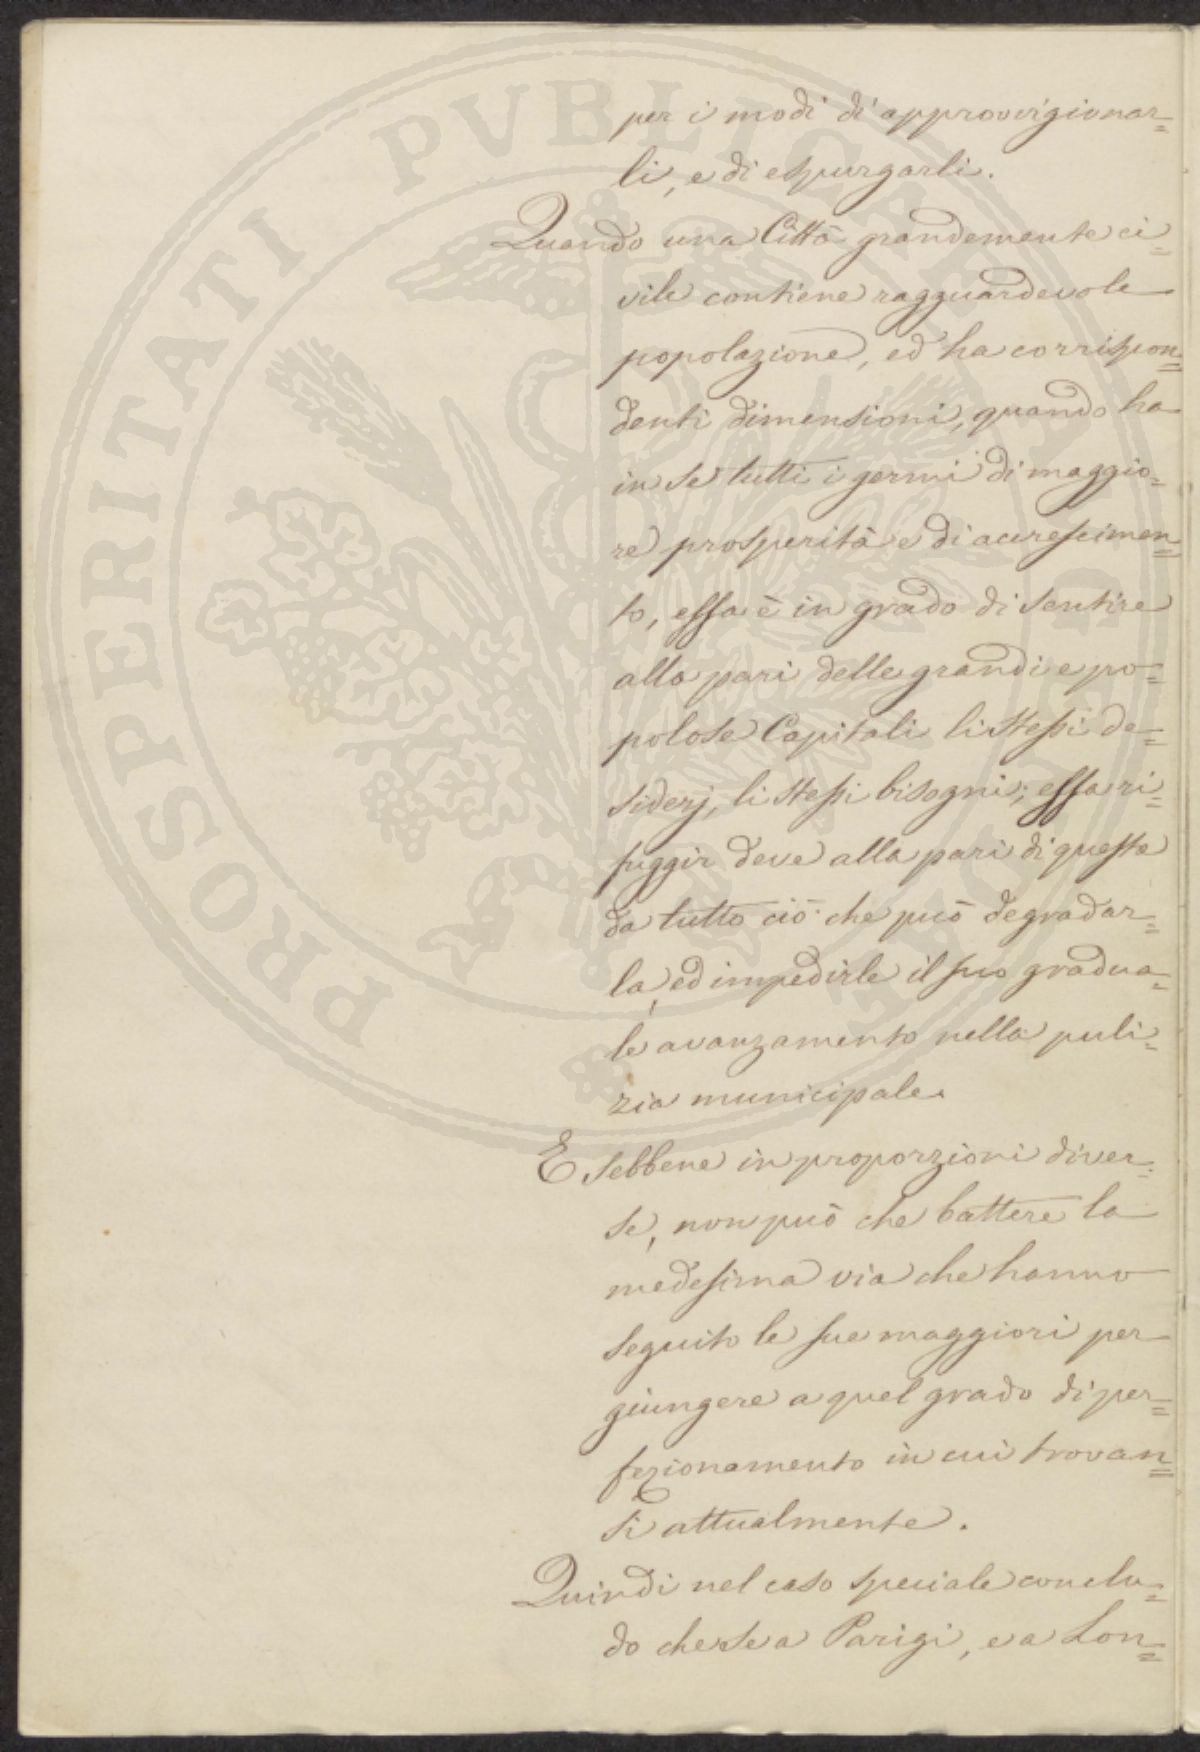 per i modi di approvvigionar=
li, e di espurgarli.
Quando una Città grandemente ci=
vile contiene ragguardevole
popolazione, ed ha corrispon=
denti dimensioni, quando ha
in sé tutti i germi di maggio=
re prosperità e di accrescimen=
to, essa è in grado di sentire
alla pari delle grandi e po=
polose Capitali li stessi de=
siderj, li stessi bisogni; essa ri=
fuggir deve alla pari di queste
da tutto ciò che può degradar=
la, ed impedirle il suo gradua=
le avanzamento nella puli=
zia municipale.
E sebbene in proporzioni diver=
se, non può che battere la
medesima via che hanno
seguito le sue maggiori per
giungere a quel grado di per=
fezionamento in cui trovan=
si attualmente.
Quindi nel caso speciale conclu=
do che se a Parigi, e a Lon=
PROSPERITATI PVBLICAE AVGENDAE